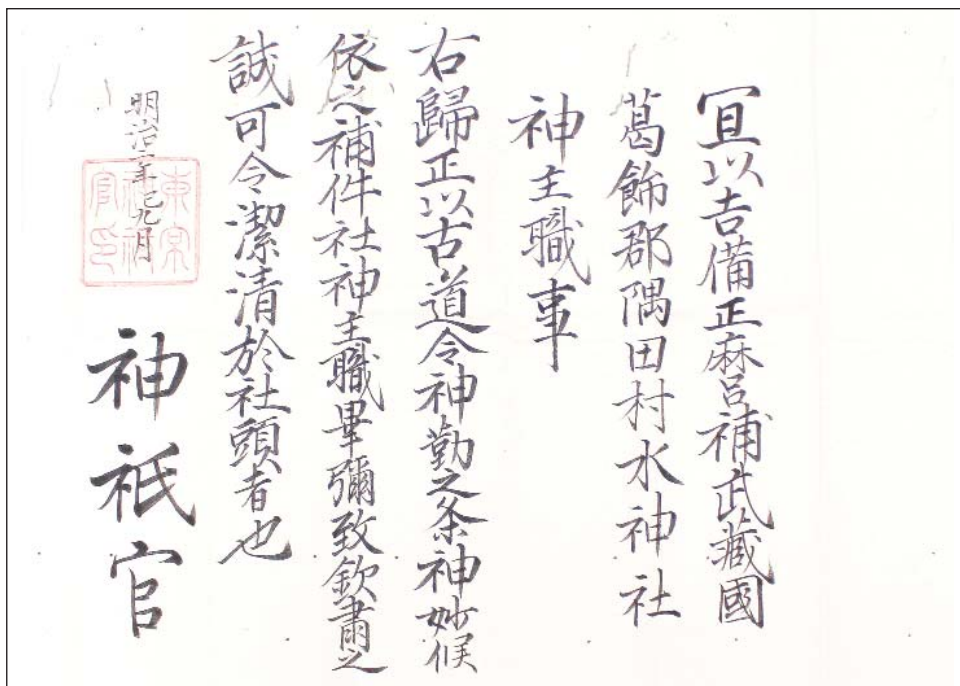 冝以吉備正麻呂補武藏國
葛飾郡隅田村水神社
神主職事
右歸正以古道令神勤之条神妙候
依之補件社神主職畢彌致欽肅之
誠可令潔清於社頭者也
明治二年己巳九月
神祇官
東京神祇官印